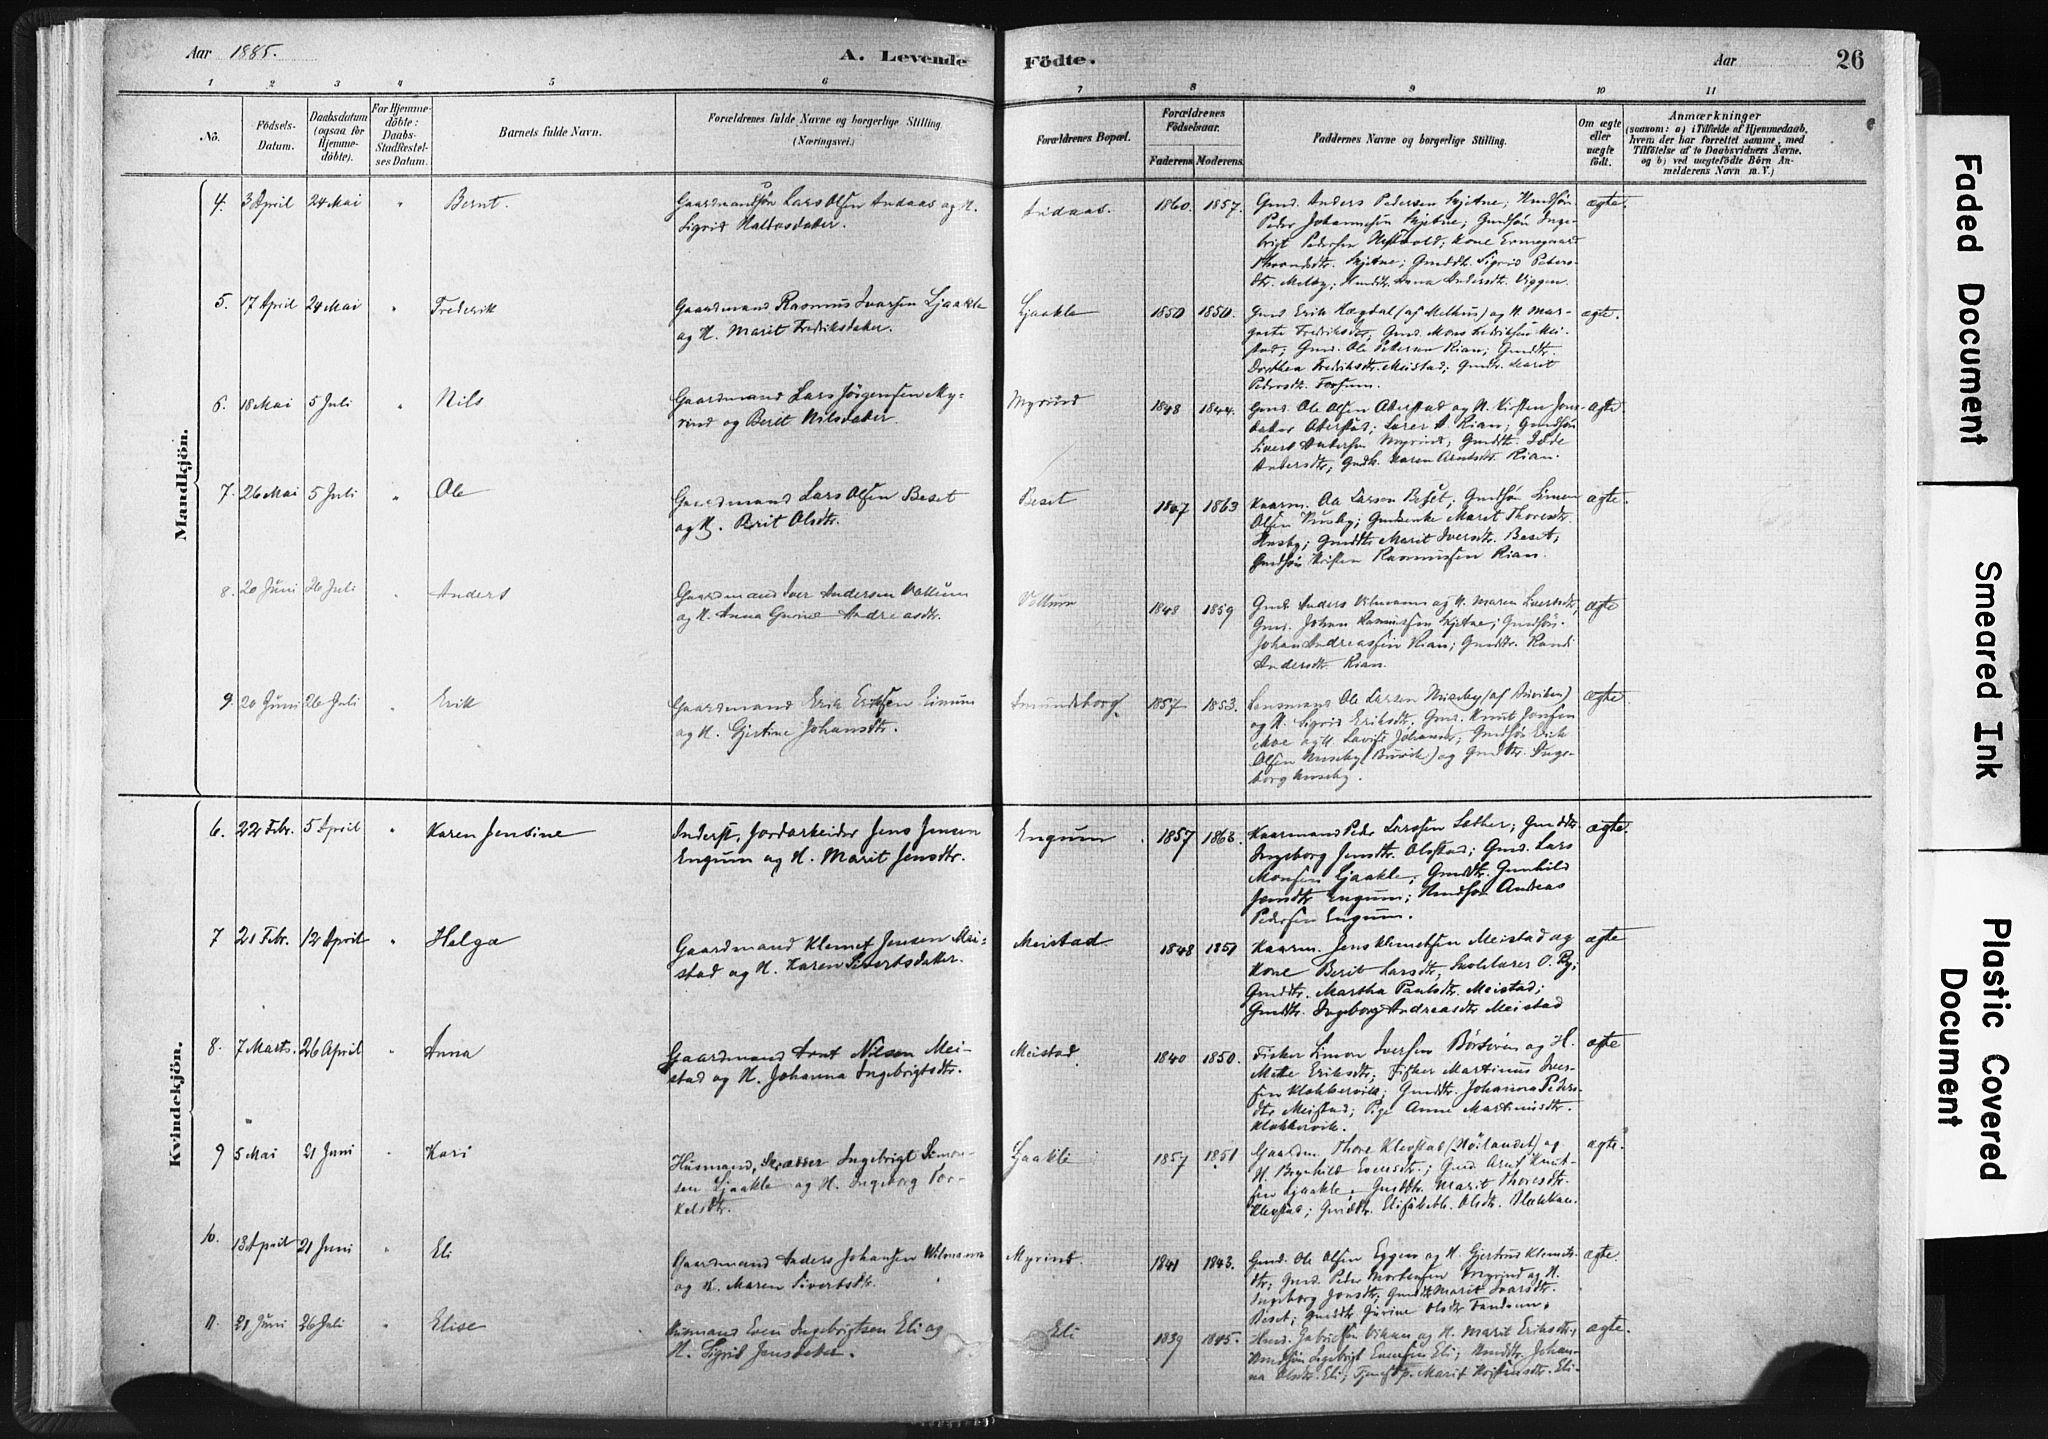 Aar 1885.
A. Levende
Födte.
Aar
26
1 2 3 4 5 6 7 8 9 10 11
No.
Födsels-
Datum.
Daabsdatum
(ogsaa for
Hjemme-
döbte).
For Hjemme-
döbte:
Daabs-
Stadfestel-
ses Datum.
Barnets fulde Navn.
Forældrenes fulde Navne og borgerlige Stilling
(Næringsvei.)
Forældrenes Bopæl.
Forældrenes
Födselsaar.
Faderens. Moderens.
Faddernes Navne og borgerlige Stilling.
Om ægte
eller
uægte
födt.
Anmærkninger
(saasom: a) i Tilfælde af Hjemmedaab,
hvem der har forrettet samme, med
Tilföielse af to Daabsvidners Navne,
og b) ved uægtefödte Börn An-
melderens Navn m. V.)
Mandkjön.
4. 3 April 24 Mai " Bernt.
Gaardmandsön Lars Olsen Andaas og H.
Sigrid Haldosdatter.
Andaas. 1860. 1857.
Gmd. Anders Pedersen Skjetne; Hmdsön
Peder Johannesen Skjetne; Gmdsön Inge-
brigt Pedersen; Kone
Skjetne; Gmddtr. Sigrid Peders-
dtr. Melby; Anna Andersdtr. Viggen.
ægte.
5. 17 April 24 Mai " Frederik
Gaardmand Rasmus Ivarsen Ljaakle
og H. Marit Fredriksdatter.
Ljaakle 1850 1850.
Gmd. Erik Hægdal (af Melhus) og H. Mar-
grete Fredriksdtr; Gmd. Mons Fredriksen Mei-
stad; Gmd. Ole Petersen Rian; Gmddtr.
Dorthea Fredriksdtr. Meistad; Gmddtr. Marit
Pedersdtr. Forsem.
ægte.
6. 18 Mai 5 Juli " Nils
Gaardmand Lars Jörgensen My-
rind og Berit Nilsdatter.
Myrind 1848 1844.
Gmd. Ole Olsen Otterstad og H. Kirsten Jons-
datter Otterstad; Lærer A. Rian; Gmdsön
Sivert Andersen Myrind; Gmddtr.
Andersdtr; Gmdtr. Karen Arntsdtr. Rian.
ægte.
7. 26 Mai 5 Juli " Ole
Gaardmand Lars Olsen Beset
og H. Berit Olsdtr.
Beset 1863
Kaarm. Ole Larsen Beset; Gmdsön Simen
Olsen Husby; Gmdsenke Marit Thoresdtr.
Husby; Gmddtr. Marit Iversdtr. Beset;
Gmdsön Kristen Rasmussen Rian.
ægte.
8. 20 Juni 26 Juli " Anders
Gaardmand Iver Andersen Vollum
og H. Anna Andreasdtr.
Vollum 1848 1859
Gmd. Anders Vilmann og H. Maren Sivertsdtr,
Gmd. Johan Rasmussen Skjetne; Gmdsön.
Johan Andreassen Rian; Gmddtr. Randi
Andersdtr. Rian.
ægte
9. 20 Juni 26 Juli " Erik
Gaardmand Erik Eriksen
og H. Gjertine Johansdtr.
1857 1853.
Lensmand Ole Larsen Museby (af Buviken)
og H. Sigrid Eriksdtr. Gmd. Knut Jonsen
Moe og H. Lovise Johansd; Gmdsön Erik
Olsen Museby (Buvik) og Gmddtr. Inge-
borg Museby.
ægte.
Kvindekjön.
6. 22 Febr. 5 April " Karen Jensine
Inderst, Jordarbeider Jens Jensen
Engum og H. Marit Jensdtr.
Engum 1857 1863.
Kaarmand Peder Larssen Sæther; Gmddtr.
Ingeborg Jensdtr. Olstad; Gmd. Lars
Monsen Ljaakle; Gmddtr. Gunhild
Jensdtr. Engum; Hmdsön Andreas
Pedersen Engum.
ægte.
7 21 Febr. 12 April " Helga
Gaardmand Klemet Jensen Mei-
stad og H. Karen Sivertsdatter.
Meistad 1848 1851
Kaarm. Jens Klemetsen Meistad og
Kone Berit Larsdtr, Skolelærer O. By;
Gmddtr. Martha Paulsdtr. Meistad;
Gmddtr. Ingeborg Andreasdtr Meistad
ægte
8. 7 Marts. 26 April " Anna
Gaardmand Arnt Nilsen Mei-
stad og H. Johanna Ingebrigtsdtr.
Meistad 1840 1850.
Fisker Simon Iversen Börsören og H.
Mette Eriksdtr; Fisker Martinus Iver-
sen Klokkervik; Gmddtr. Johanna Peders-
dtr. Meistad; Pige Anne Martinusdtr.
Klokkervik.
ægte
9 5 Mai 21 Juni " Kari
Husmand, Skrædder Ingebrigt Simon-
sen Ljaakle og H. Ingeborg Tor-
kelsdtr.
Ljaakle 1857 1851
Gaardm. Thore Klevstad (Höilandet) og
H. Brynhild Evensdtr.; Gmd Arnt Knut-
sen Ljaakle; Gmddtr. Marit Thoresdtr.
Klevstad; Gmddtr. Elisabeth Olsdtr.
ægte.
10. 13 April 21 Juni " Eli
Gaardmand Anders Johansen Wilmann
og H. Maren Sivertsdtr.
Myrind. 1841 1843.
Gmd. Ole Olsen Eggen og H. Gjertrud Klemets-
dtr; Gmd. Peder Mortensen Myrind og H.
Ingeborg Jonsdtr; Gmddtr Marit Ivarsdtr.
Beset; Gmddtr. Jörine Olsdtr
ægte.
11. 21 Juni 26 Juli " Elise
Husmand Even Ingebrigtsen Eli og
H. Sigrid Jensdatter.
Eli 1839 1845.
Hmd. og H. Marit Eriksdtr;
Hmdsön Ingebrigt Evensen Eli; Hmddtr. Johan-
na Olsdtr. Eli; Tjenestep. Marit Eli
ægte.
Faded Document
Smeared Ink
Plastic Covered
Document